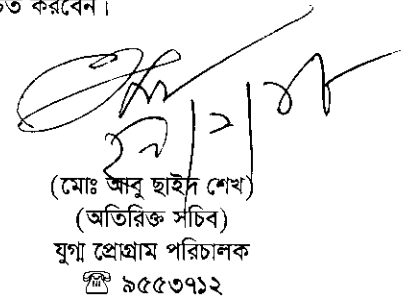 চত করবেন।
(মোঃ আবু ছাইদ শেখ)
(অতিরিক্ত সচিব)
যুগ্ম প্রোগ্রাম পরিচালক
☎ ৯৫৫৩৭১২